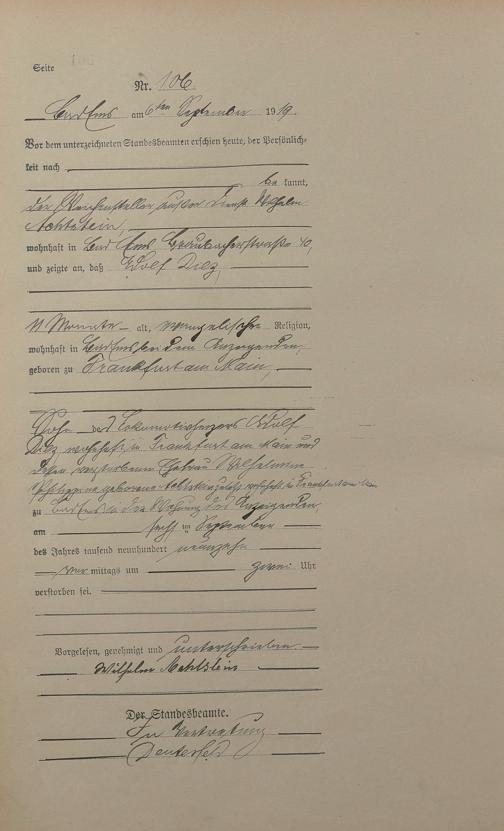 Seite
Nr. 106.
Bad Ems am 6ten September 1919.
Vor dem unterzeichneten Standesbeamten erschien heute, der Persönlich-
keit nach
be kannt,
der Weichensteller außer Dienst Wilhelm
wohnhaft in Bad Ems Graubacherstraße 40,
und zeigte an, daß Adolf Diez,
11 Monate alt, evangelischer Religion,
wohnhaft in Bad Ems bei dem Anzeigenden,
geboren zu Frankfurt am Main,
Sohn des Lokomotivheizers Adolf
Diez wohnhaft in Frankfurt am Main und
dessen verstorbenen Ehefrau Wilhelmine
Philippine geborene zuletzt wohnhaft in Frankfurt am Main
zu Bad Ems in der Wohnung des Anzeigenden,
am sechsten September
des Jahres tausend neunhundert neunzehn
vor mittags um zwei Uhr
verstorben sei.
Vorgelesen, genehmigt und unterschrieben.
Wilhelm
Der Standesbeamte.
In Vertretung